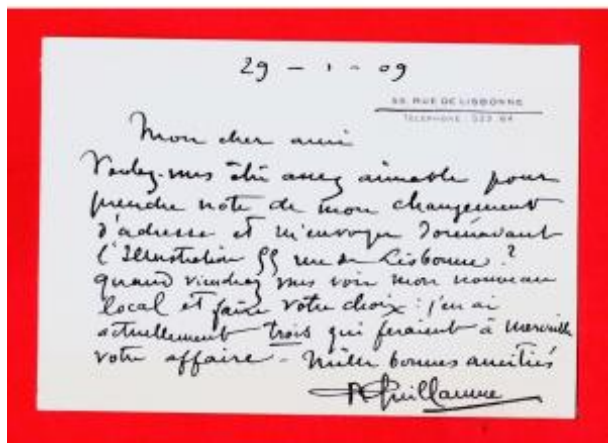 29 - 1 - 09
55, RUE DE LISBONNE
TELEPHONE 523.64
Mon cher ami
Voulez-vous être assez aimable pour
prendre note de mon changement
d'adresse et m'envoyer dorénavant
l'Illustration 55 rue de Lisbonne ?
quand viendrez vous voir mon nouveau
local et faire votre choix : j'en ai
actuellement trois qui feraient à merveille
votre affaire - Mille bonnes amitiés
Guillaume